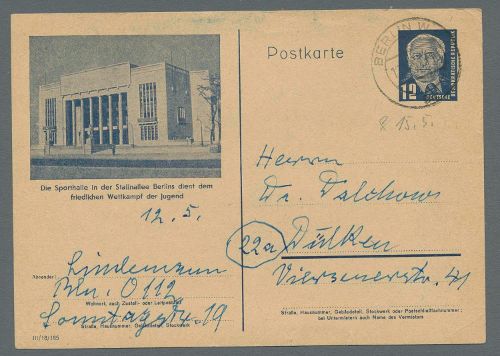 Postkarte
BERLIN W
12
DEUTSCHE
DEMOKRATISCHE REPUBLIK
8 15.5.
Die Sporthalle in der Stalinallee Berlins dient dem
friedlichen Wettkampf der Jugend
12.5.
Herrn
Dr. Dalchows
22a Dülken
Viersenerstr. 41
Absender:
Lindemann
Bln. O 112
Wohnort, auch Zustell- oder Leitpostamt
Sonntagstr. 19
Straße, Hausnummer, Gebäudeteil, Stockwerk
Straße, Hausnummer, Gebäudeteil, Stockwerk oder Postschließfachnummer;
bei Untermietern auch Name des Vermieters
III/18/185